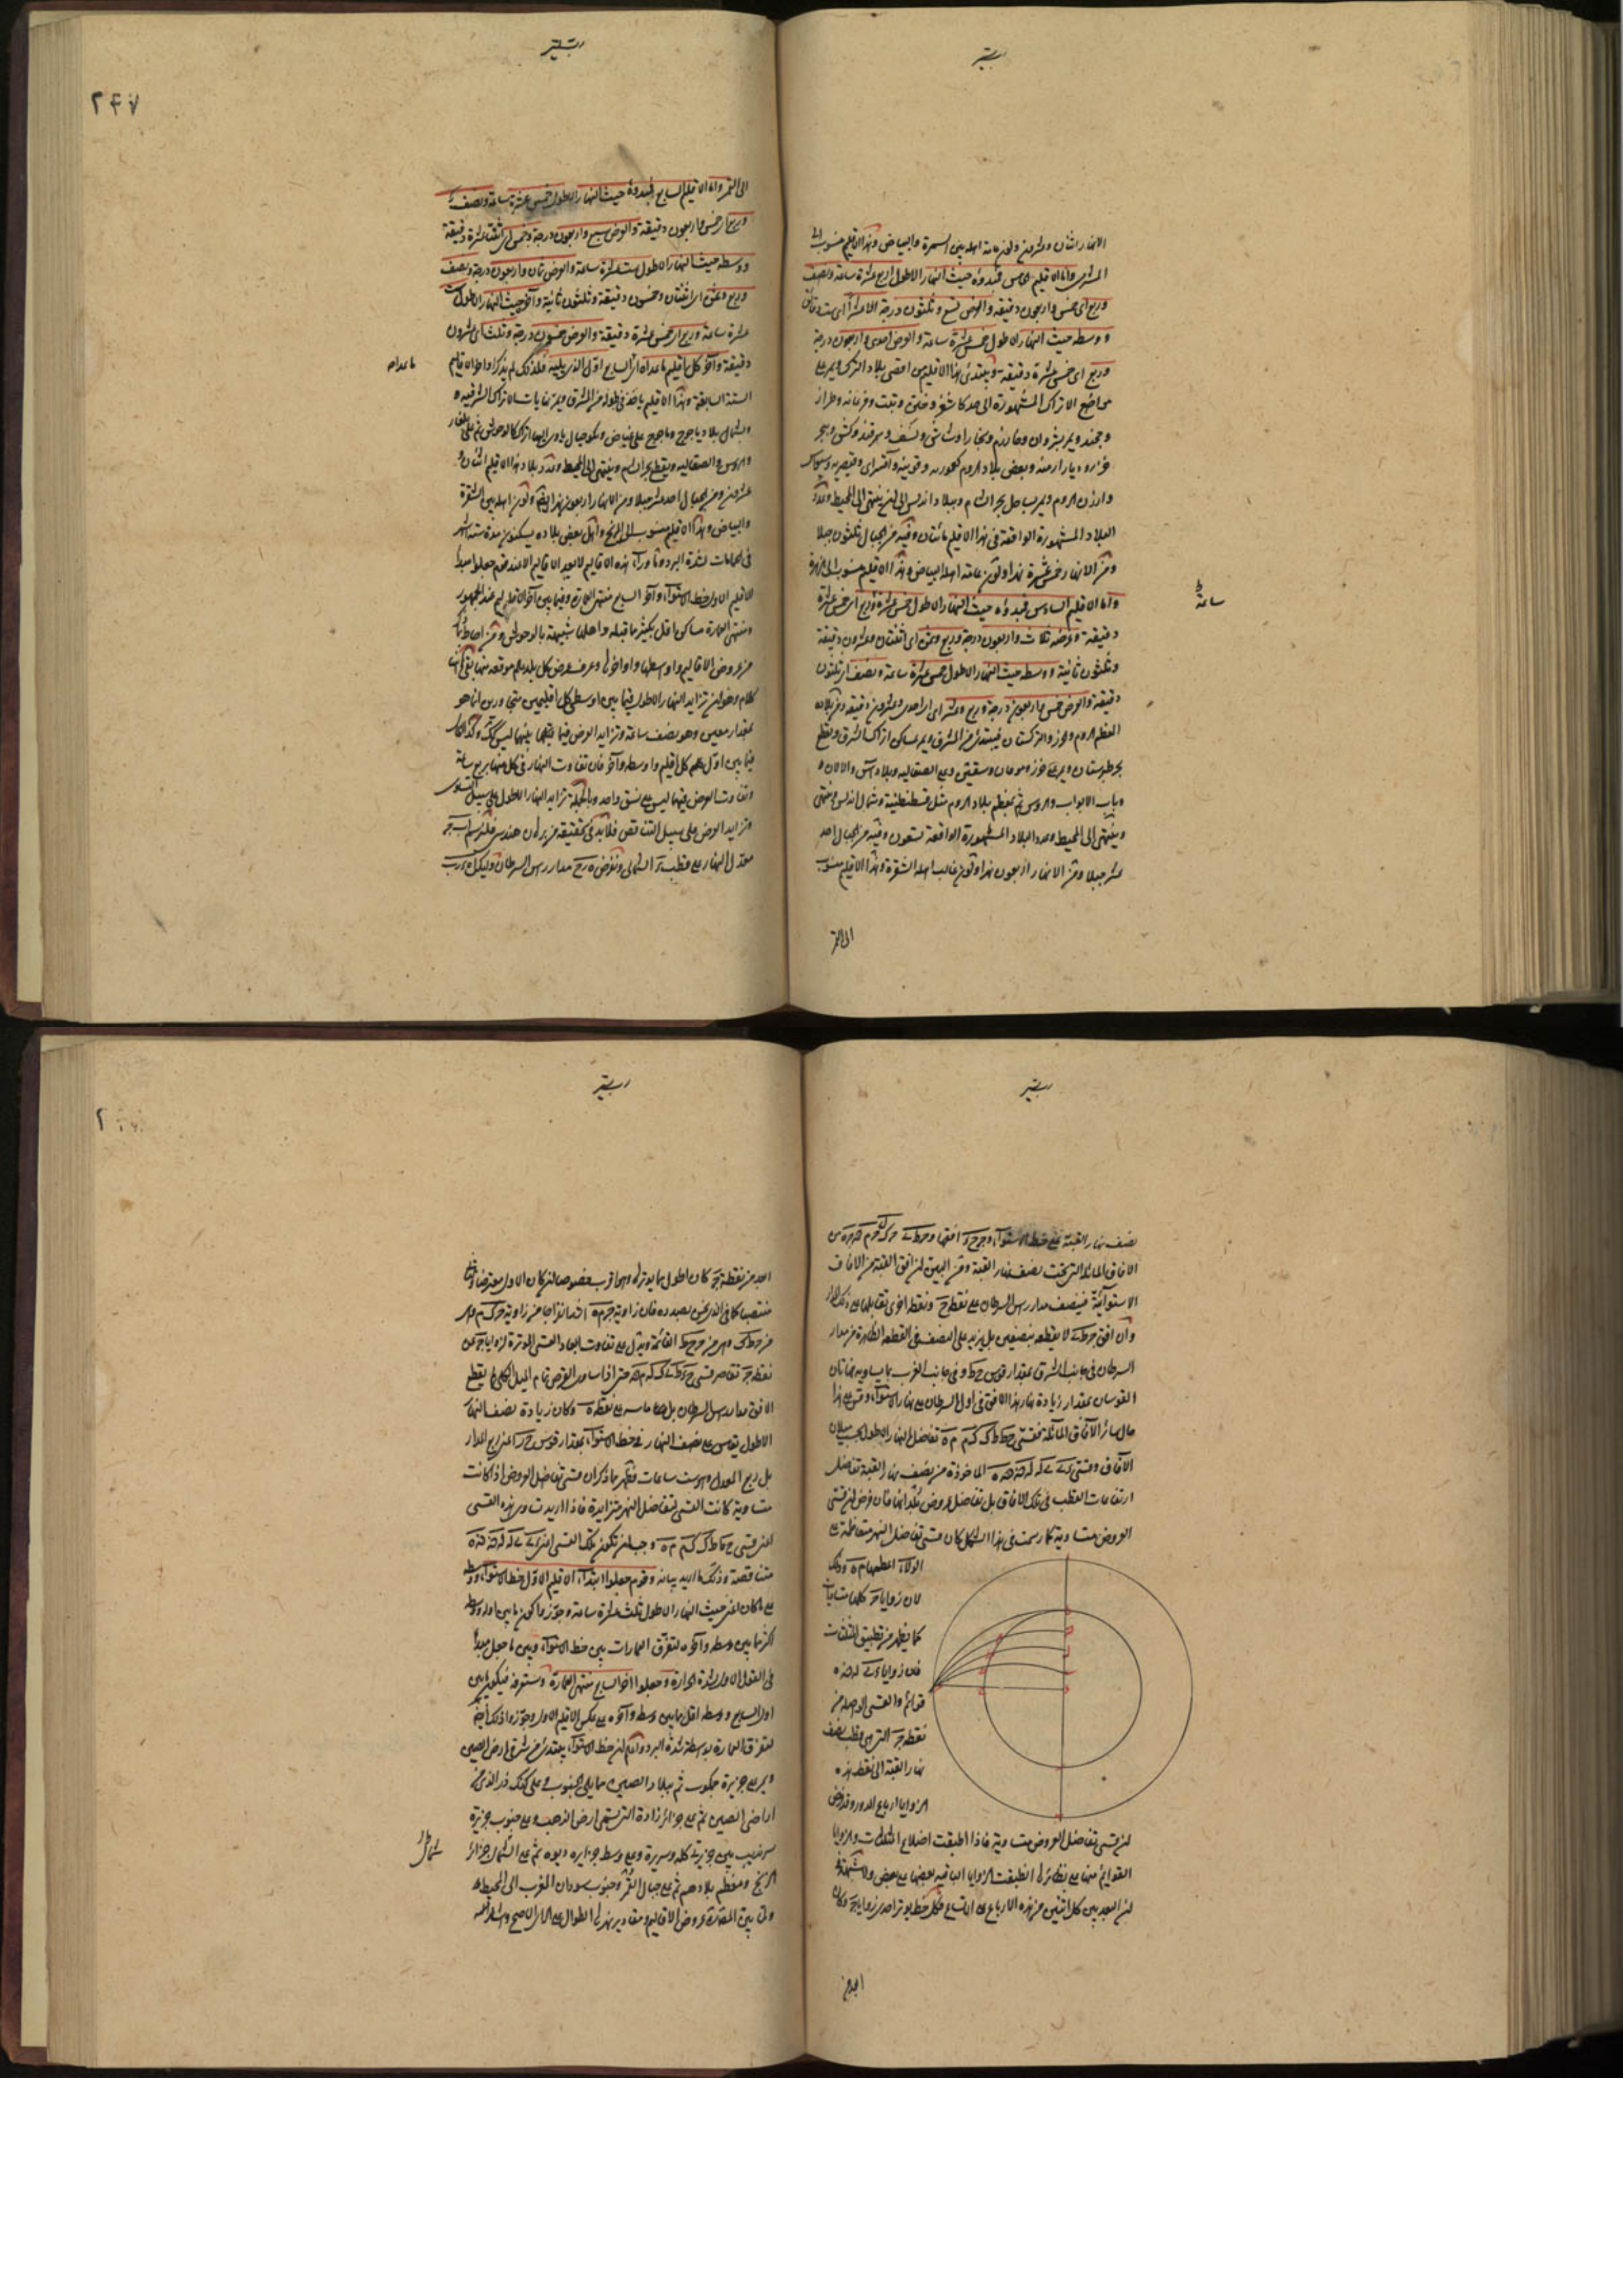 الانهار اثنان وعشرون ولون عامة اهله بين السمرة والبياض وهذا الاقليم منسوب الى
المشترى واما الاقليم الخامس فمبدؤه حيث النهار الاطول اربع عشرة ساعة ونصف
وربع اى خمس واربعون دقيقة والعرض تسع وثلثون درجة الا عشرا اى ست دقائق
ووسطه حيث النهار الاطول خمس عشرة ساعة والعرض احدى واربعون درجة
وربع اى خمس عشرة دقيقة ويبتدئ هذا الاقليم من اقصى بلاد الترك ويمر على
مواضع الاتراك المشهورة الى حد كاشغر وختن وتبت وفرغانه وطراز
وخجند ويمر بشروان وخوارزم وبخارا وشاش ونسف وسمرقند وكش وبحر
خزر وديار ارمنه وبعض بلاد الروم كعموريه وقونيه وآقسراى وقيصريه وسيواس
وارزن الروم ويمر بساحل بحر الشام وببلاد اندلس الى ان ينتهى الى المحيط وعدد
البلاد المشهورة الواقعة فى هذا الاقليم مائتان وفيه من الجبال ثلثون جبلا
ومن الانهار خمس عشرة نهرا ولون عامة اهله البياض وهذا الاقليم منسوب الى الزهرة
واما الاقليم السادس فمبدؤه حيث النهار الاطول خمس عشرة وربع اى خمس عشرة
ساعة
دقيقة وعرضه ثلاث واربعون درجة وربع وثمن اى اثنتان وعشرون دقيقة
وثلثون ثانية ووسطه حيث النهار الاطول خمس عشرة ساعة ونصف اى ثلثون
دقيقة والعرض خمس واربعون درجة وربع وعشر اى احدى وعشرون دقيقة ومن بلاده
العظم الروم والخزر والتركستان فيبتدئ من المشرق ويمر بمساكن اتراك الشرق ويقطع
بحر طبرستان ويمر على خزر وموقان وسقسين ومع الصقاليه وبلاد آس والالان و
وباب الابواب والروس ثم بمعظم بلاد الروم مثل قسطنطنية وشمال اندلس وينتهى
وينتهى الى المحيط وعدد البلاد المشهورة الواقعة تسعون وفيه من الجبال احد
عشر جبلا ومن الانهار اربعون نهرا ولون غالب اهله الشقرة وهذا الاقليم منسوب
الى القمر
٢٤٧
الى القمر واما الاقليم السابع فمبدؤه حيث النهار الاطول خمس عشرة ساعة ونصف
وربع اى خمس واربعون دقيقة والعرض سبع واربعون درجة وخمس اى اثنتا عشرة دقيقة
ووسطه حيث النهار الاطول ست عشرة ساعة والعرض ثمان واربعون درجة ونصف
وربع وثمن اى اثنتان وخمسون دقيقة وثلثون ثانية وآخره حيث النهار الاطول ست
عشرة ساعة وربع اى خمس عشرة دقيقة والعرض خمسون درجة وثلث اى عشرون
دقيقة وآخر كل اقليم ما عداه اى السابع اول الذى يليه فلذلك لم يذكر اواخر الاقاليم
ما عداه
الستة السابقة وهذا الاقليم ياخذ فى طوله من المشرق ويمر بنهايات الاتراك الشرقيه و
وبشمال بلاد ياجوج وماجوج على غياض وبلغار
والروس والصقاليه ويقطع بحر الشام وينتهى الى المحيط وعدد بلاد هذا الاقليم اثنان و
عشرون ومن الجبال احد عشر جبلا ومن الانهار اربعون نهرا ولون اهله بين الشقرة
والبياض وهذا الاقليم منسوب الى المريخ واهل بعض بلاده يسكنون مدة ستة اشهر
فى الحمامات لشدة البرد وما وراء هذه الاقاليم لا يعد من الاقاليم الا عند قوم جعلوا مبدأ
الاقليم الاول خط الاستواء وآخر السابع منتهى العمارة وفيما بين آخر الاقاليم عند الجمهور
ومنتهى العمارة مساكن اقل بكثير مما قبله واهلها شبيهة بالوحوش ومن احاط بما ذكر
من عروض الاقاليم واوسطها واواخرها وعرف عرض كل بلد يعلم موقعه منها بقى ههنا
كلام وهو ان تزايد النهار الاطول فيما بين اوسطى كل اقليمين متجاورين انما هو
بمقدار معين وهو نصف ساعة وتزايد العرض فيما بينهما ليس كذلك وكذا الحال
فيما بين اول كل اقليم واوسطه وآخره فان تفاوت النهار فى كل منهما بربع ساعة
وتفاوت العرض فيهما ليس على نسق واحد وبالجملة تزايد النهار الاطول على سبيل التساوى
وتزايد العرض على سبيل التناقص فلا بد فى تحقيقه من برهان هندسى فلنرسم اب جد
معدل النهار على قطب ه الشمالى ونفرض رح مدار راس السرطان وليكن
نصف نهار القبة على خط الاستواء
الافاق المائلة التى تحت نصف نهار القبة ومن البين ان افق القبة من الافاق
الاستوائية فينصف مدار راس السرطان على نقطة ح ونقطة اخرى تقابلها على ذلك المدار
وان افق لا يقطعه بنصفين بل يزيد على النصف فى القطعة الظاهرة من مدار
السرطان فى جانب الشرق بمقدار قوس حط وفى جانب الغرب بما يساويه فهاتان
القوسان بمقدار زيادة نهار هذا الافق فى اول السرطان على نهار الاستواء وقس على هذا
حال سائر الافاق المائلة فقسى حط طك كم م ه تفاضل النهار الاطول بحسب ميلان
الافاق وقسى الماخوذة من نصف نهار القبة تفاضل
ارتفاعات القطب فى تلك الافاق بل تفاضل عروض بلدانها فان فرض ان قسى
العروض متساوية كما رسمت فى هذا الشكل كان قسى تفاضل النهر متفاضلة على
الولاء اعظمها م ه وذلك
لان زوايا جـ كلها متساوية
كما يظهر من تطبيق المثلثات
فان زوايا
قوائم والقسى الواصلة من
نقطة جـ التى هى قطب نصف
نهار القبة الى نقط هذه
الزوايا ارباع الدور وقد فرض
ان قسى تفاضل العروض متساوية فاذا اطبقت اضلاع المثلثات والزوايا
القوائم منها على نظائرها انطبقت الزوايا الباقية بعضها على بعض ولا شبهة فى
ان البعد بين كل اثنين من هذه الارباع على اتساع فكل خط يوتر احدى زوايا جـ وكان
ابعد من
ابعد من نقطة جـ كان اطول مما يوترها وهو اقرب خصوصا ان كان الاول معترضا
منتصبا كما فى الذى نحن بصدده فان زاوية اشد انفراجا من زاوية
القائمة ويدل على تفاوت ابعاد القسى الموترة لزوايا جـ من
نقطة جـ تقاصر قسى حتى اذا ساوى العرض تمام الميل الكلى لم يقطع
الافق مدار راس السرطان بل ماسه على نقطة ه وكان زيادة نصف النهار
الاطول بقياس على نصف النهار فى خط الاستواء بمقدار قوس اعنى ربع المدار
بل ربع المعدل وهو ست ساعات فظهر مما ذكر ان قسى تفاضل العروض اذا كانت
متساوية كانت القسى لتفاضل النهر متزايدة فاذا اريدت تساوى هذه القسى
اعنى قسى وجب ان تكون تلك القسى اعنى
متناقصة وذلك ما اريد بيانه وقوم جعلوا ابتداء الاقليم الاول خط الاستواء ووسطه
على ما كان اعنى حيث النهار الاطول ثلث عشرة ساعة وجوزوا كون ما بين اوله ووسطه
اكثر مما بين وسطه وآخره لتفرق العمارات بين خط الاستواء وبين ما جعل مبدأ
فى القول الاول لشدة الحرارة وجعلوا اخر السابع منتهى العمارة وستعرفه فيكون ما بين
اول السابع ووسطه اقل مما بين وسطه وآخره على عكس الاقليم الاول وجوزوا ذلك ايضا
لتفرق العمارة بواسطة شدة البرد واعلم ان خط الاستواء يبتدئ من شرق ارض الصين
ويمر على جزيرة جمكوت ثم ببلاد الصين مما يلى الجنوب وعلى كنك دز الذى فى
اراضى الصين ثم على جزائر زاده التى تسمى ارض الذهب وعلى جنوب جزيرة
سرنديب بين جزيرتى كله وسريرة وعلى وسط جزايره ديوه ثم على شمال جزائر
شمال
الزنج ومعظم بلادهم ثم على جبال القمر وجنوب سودان المغرب الى المحيط
ولما بين المصنف عروض الاقاليم ومقادير نهرها الطوال على الراى الاصح واشار الى